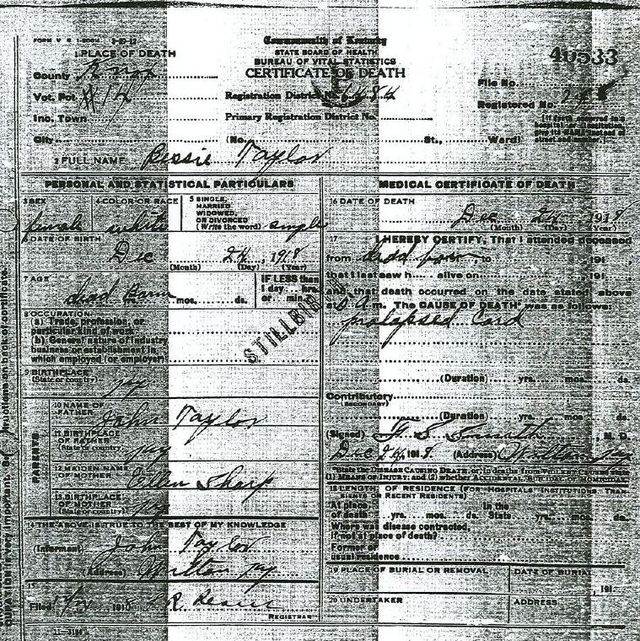 Commonwealth of Kentucky
STATE BOARD OF HEALTH
BUREAU OF VITAL STATISTICS
CERTIFICATE OF DEATH
1 PLACE OF DEATH
County Knox
Vot. Pct #14
Inc. Town
City
Registration District No. 6484
Primary Registration District No.
(No. St., Ward)
File No. 40533
Registered No.
2 FULL NAME Bessie Taylor
PERSONAL AND STATISTICAL PARTICULARS
3 SEX female
4 COLOR OR RACE white
5 SINGLE, MARRIED, WIDOWED, OR DIVORCED (Write the word) single
6 DATE OF BIRTH
Dec 24, 1918
(Month) (Day) (Year)
7 AGE
dead Born mos. ds.
IF LESS than 1 day hrs. or min.
STILLBIRTH
8 OCCUPATION
(a) Trade, profession, or particular kind of work
(b) General nature of industry, business or establishment in which employed (or employer)
9 BIRTHPLACE (State or country) Ky
PARENTS
10 NAME OF FATHER John Taylor
11 BIRTHPLACE OF FATHER (State or country) Ky
12 MAIDEN NAME OF MOTHER Ellen Sharp
13 BIRTHPLACE OF MOTHER (State or country) Ky
14 THE ABOVE IS TRUE TO THE BEST OF MY KNOWLEDGE
(Informant) John Taylor
(Address) Wilton Ky
15
Filed
REGISTRAR
MEDICAL CERTIFICATE OF DEATH
16 DATE OF DEATH
Dec 24, 1918
(Month) (Day) (Year)
17 I HEREBY CERTIFY, That I attended deceased
from to 191
that I last saw h alive on 191
and that death occurred on the date stated above
at m. The CAUSE OF DEATH was as follows:
prolapsed Cord
(Duration) yrs. mos. ds.
Contributory
(SECONDARY)
(Duration) yrs. mos. ds.
(Signed) Smith, M. D.
Dec 24, 1918. (Address) Wilton Ky
18 LENGTH OF RESIDENCE (FOR HOSPITALS, INSTITUTIONS, TRANSIENTS OR RECENT RESIDENTS)
At place of death yrs. mos. ds.
In the State yrs. mos. ds.
Where was disease contracted, if not at place of death?
Former or usual residence
19 PLACE OF BURIAL OR REMOVAL
DATE OF BURIAL
191
20 UNDERTAKER
ADDRESS